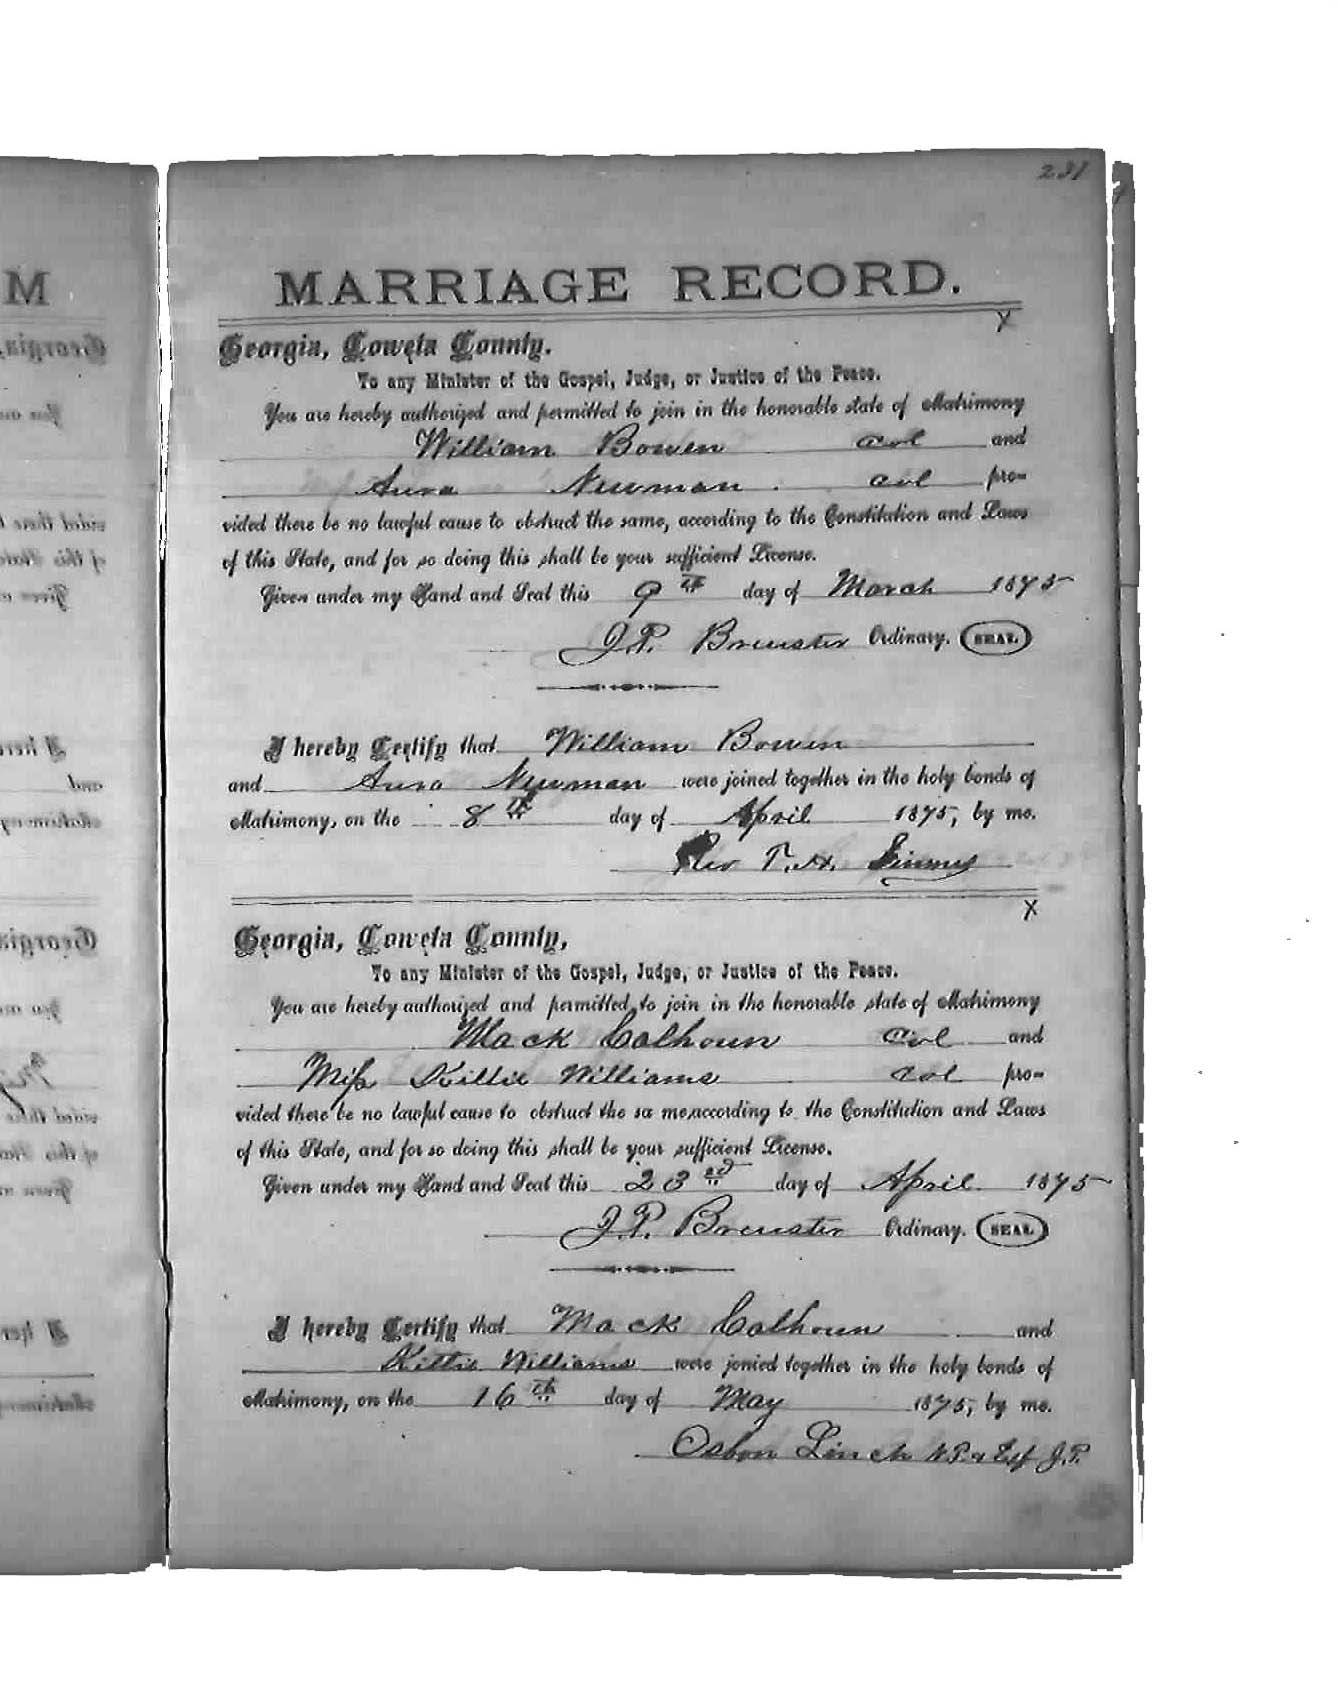 231
MARRIAGE RECORD.
X
Georgia, Coweta County.
To any Minister of the Gospel, Judge, or Justice of the Peace.
You are hereby authorized and permitted to join in the honorable state of Matrimony
William Bowen col and
Anna Newman . col pro-
vided there be no lawful cause to obstruct the same, according to the Constitution and Laws
of this State, and for so doing this shall be your sufficient License.
Given under my Hand and Seal this 9th day of March 1875
J.P. Brewster Ordinary. SEAL
I hereby Certify that William Bowen
and Anna Newman were joined together in the holy bonds of
Matrimony, on the 8th day of April 1875, by me.
Rev T. H.
X
Georgia, Coweta County,
To any Minister of the Gospel, Judge, or Justice of the Peace.
You are hereby authorized and permitted to join in the honorable state of Matrimony
Mack Calhoun Col and
Miss Kittie Williams Col pro-
vided there be no lawful cause to obstruct the sa me, according to the Constitution and Laws
of this State, and for so doing this shall be your sufficient License.
Given under my Hand and Seal this 23rd day of April 1875
J.P. Brewster Ordinary. SEAL
I hereby Certify that Mack Calhoun and
Kittie Williams were jonied together in the holy bonds of
Matrimony, on the 16th day of May 1875, by me.
Osbon Linch N.P. & Exf J.P.